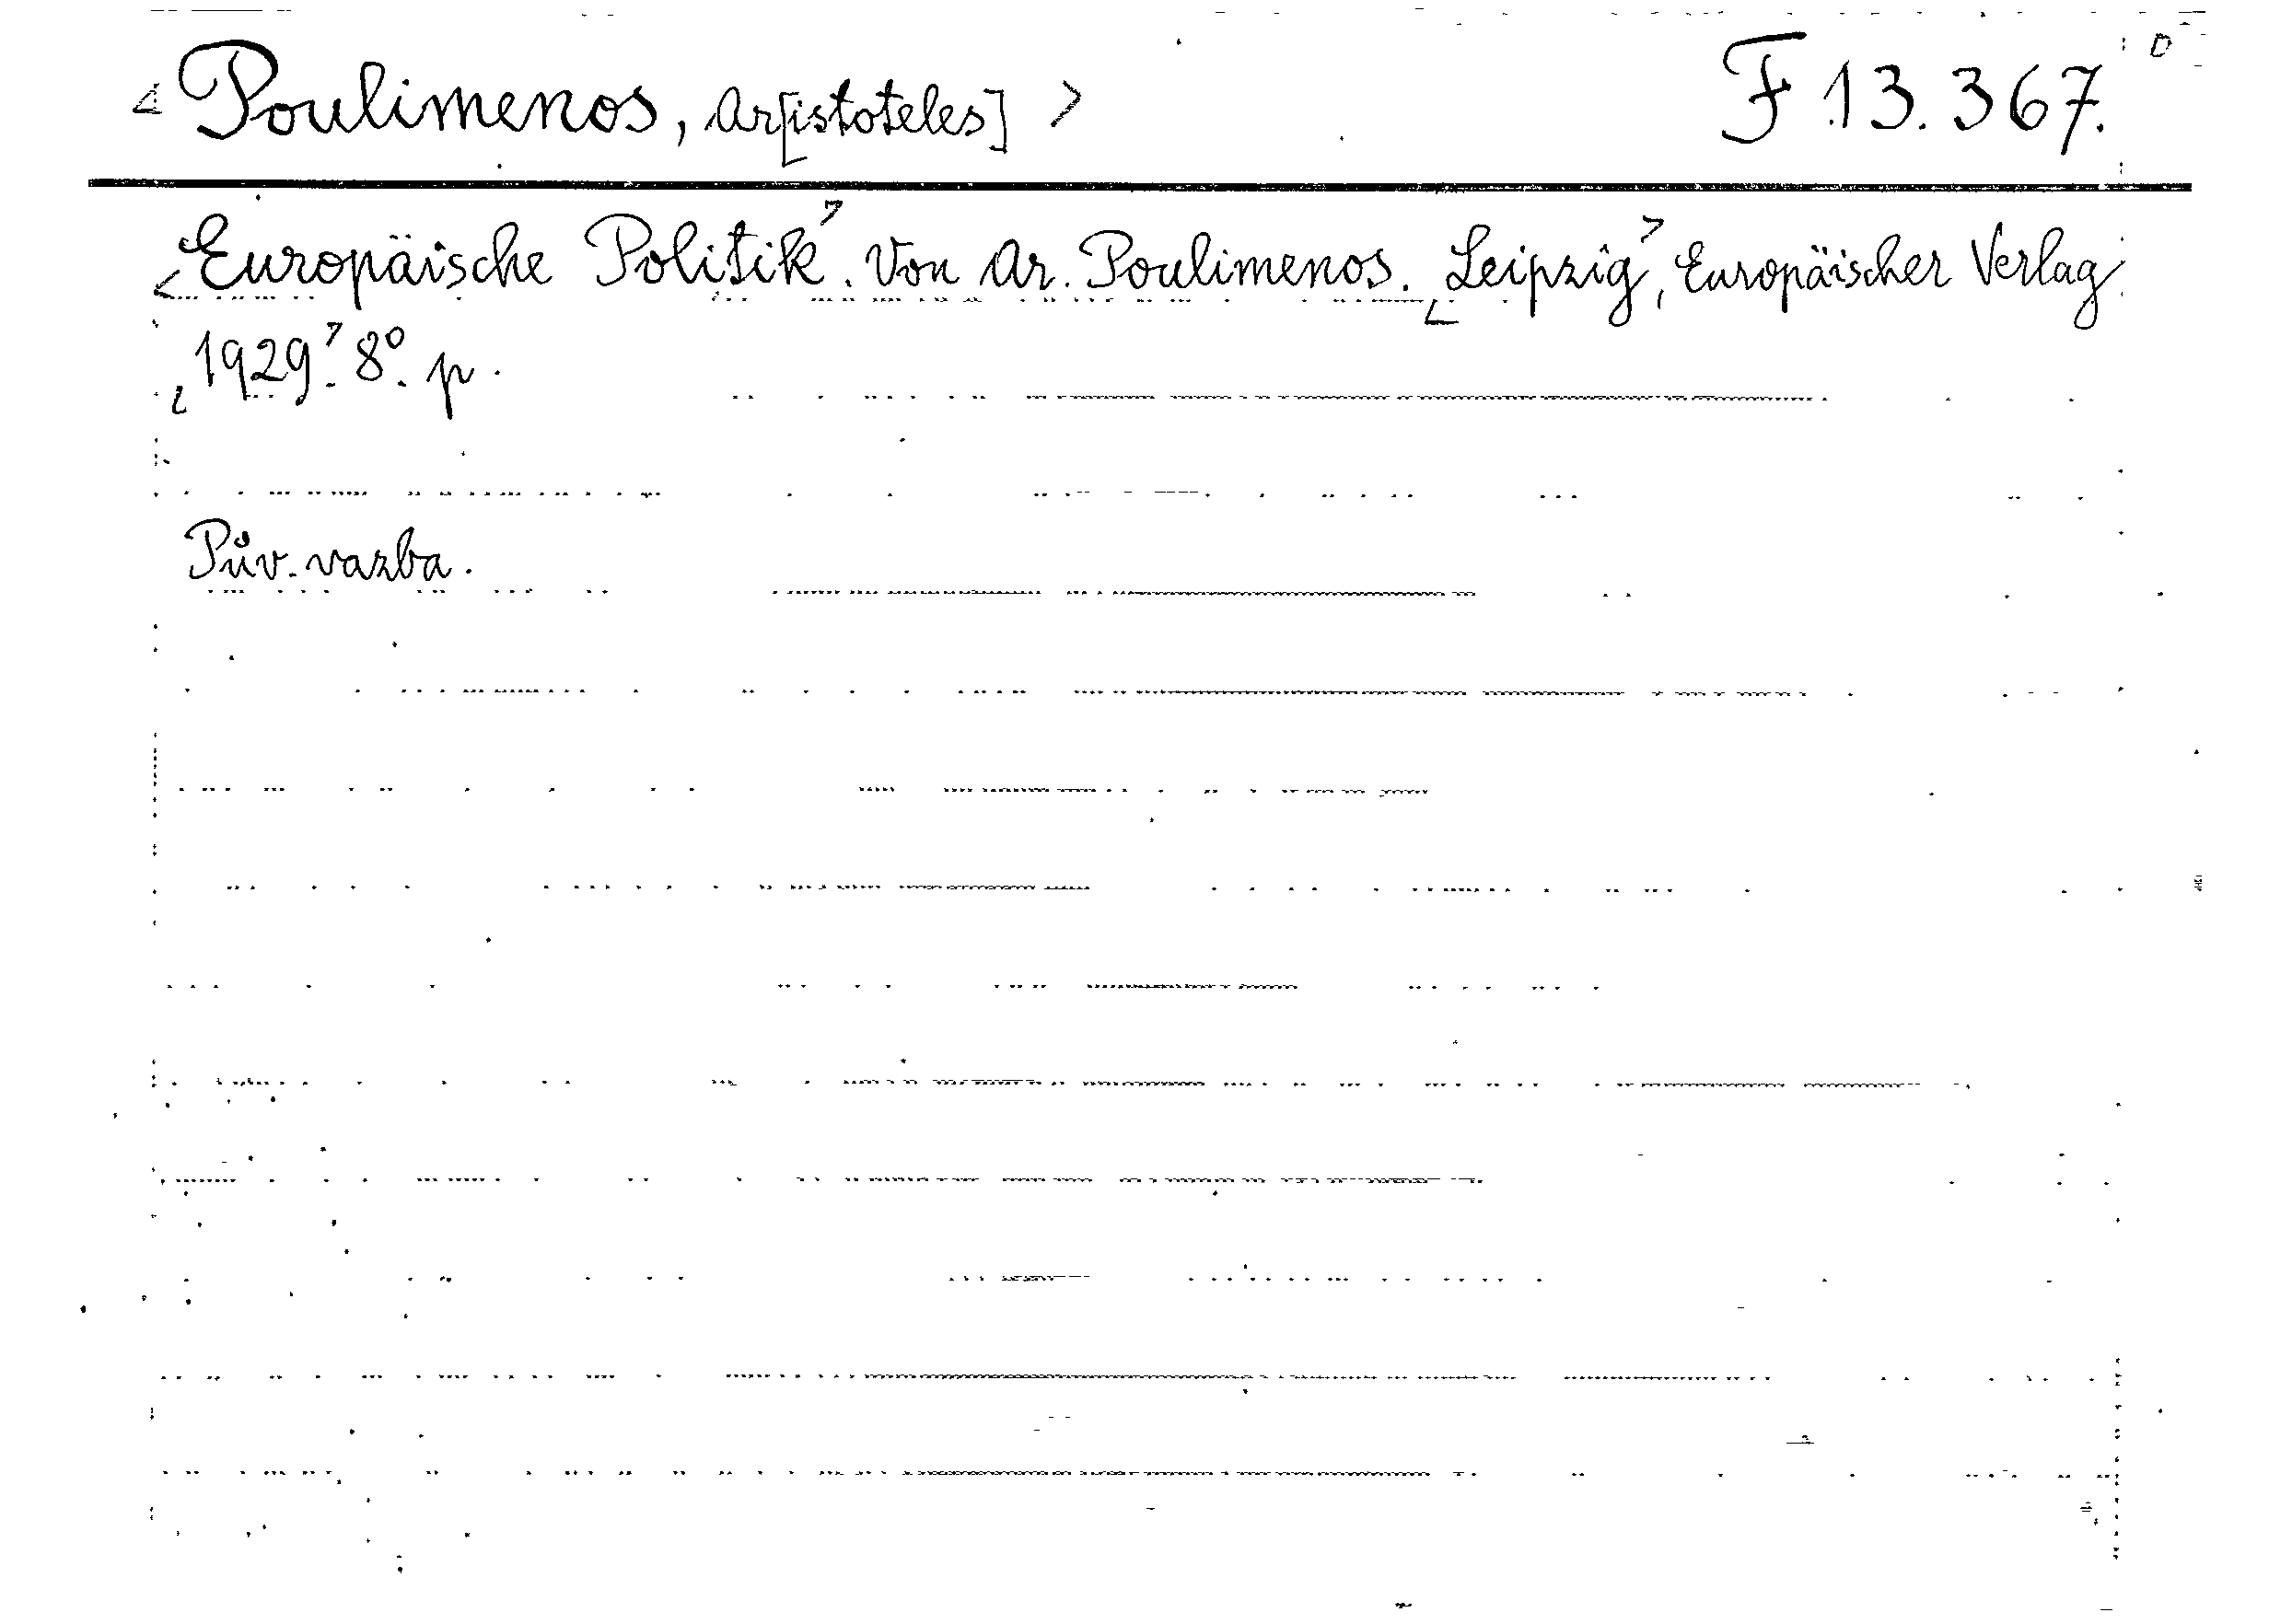 <Poulimenos, Ar[istoteles]> F 13.367. D
<Europäische Politik>. Von Ar. Poulimenos. <Leipzig>, Europäischer Verlag
<1929>. 8°. p.
Pův. vazba.